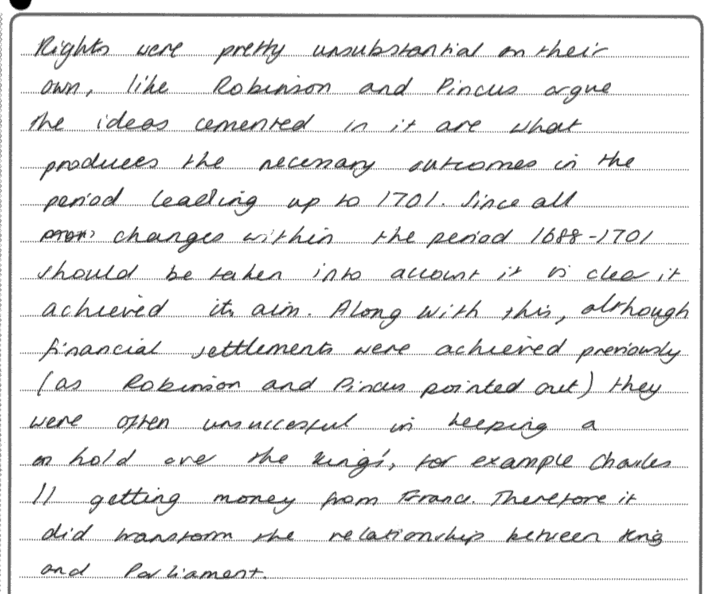 Rights were pretty unsubstantial on their
own, like Robinson and Pincus argue
the ideas cemented in it are what
produces the necessary outcomes in the
period leading up to 1701. Since all
changes within the period 1688-1701
should be taken into account it is clear it
achieved its aim. Along with this, although
financial settlements were achieved previously
(as Robinson and Pincus pointed out) they
were often unsuccesful in keeping a
on hold over the king's, for example Charles
II getting money from France. Therefore it
did transform the relationship between King
and Parliament.